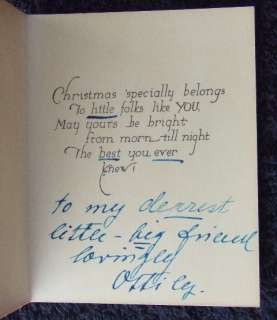 Christmas 'specially belongs
To little folks like YOU,
May yours be bright
from morn till night
The best you ever
knew!
to my dearest
little - big friend
lovingly